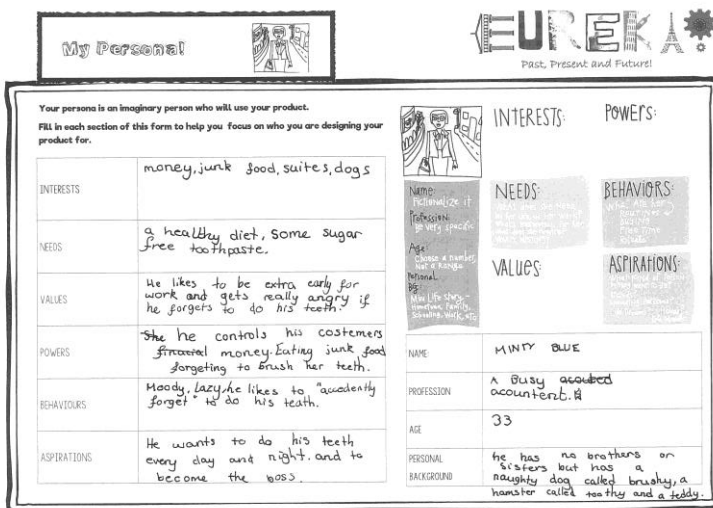 My Persona!
EUREKA!
Past, Present and Future!
Your persona is an imaginary person who will use your product.
Fill in each section of this form to help you focus on who you are designing your
product for.
INTERESTS
money, junk food, suites, dogs
NEEDS
a healthy diet, some sugar
free toothpaste.
VALUES
He likes to be extra early for
work and gets really angry if
he forgets to do his teeth.
POWERS
She he controls his costemers
finacial money. Eating junk food
forgeting to brush her teeth.
BEHAVIOURS
Moody, Lazy, he likes to "accedently
forget" to do his teath.
ASPIRATIONS
He wants to do his teeth
every day and night. and to
become the boss.
INTERESTS:
POWERS:
Name:
Fictionalize it
Profession:
Be very specific
Age:
Choose a number,
Not a Range
Personal
BG:
Mini Life Story -
Hometown, Family,
Schooling, Work, etc
NEEDS:
BEHAVIORS:
VALUES:
ASPIRATIONS:
NAME
MINTY BLUE
PROFESSION
A Busy
acountent.
AGE
33
PERSONAL
BACKGROUND
he has no brothers or
sisters but has a
naughty dog called brushy, a
hamster called toothy and a teddy.